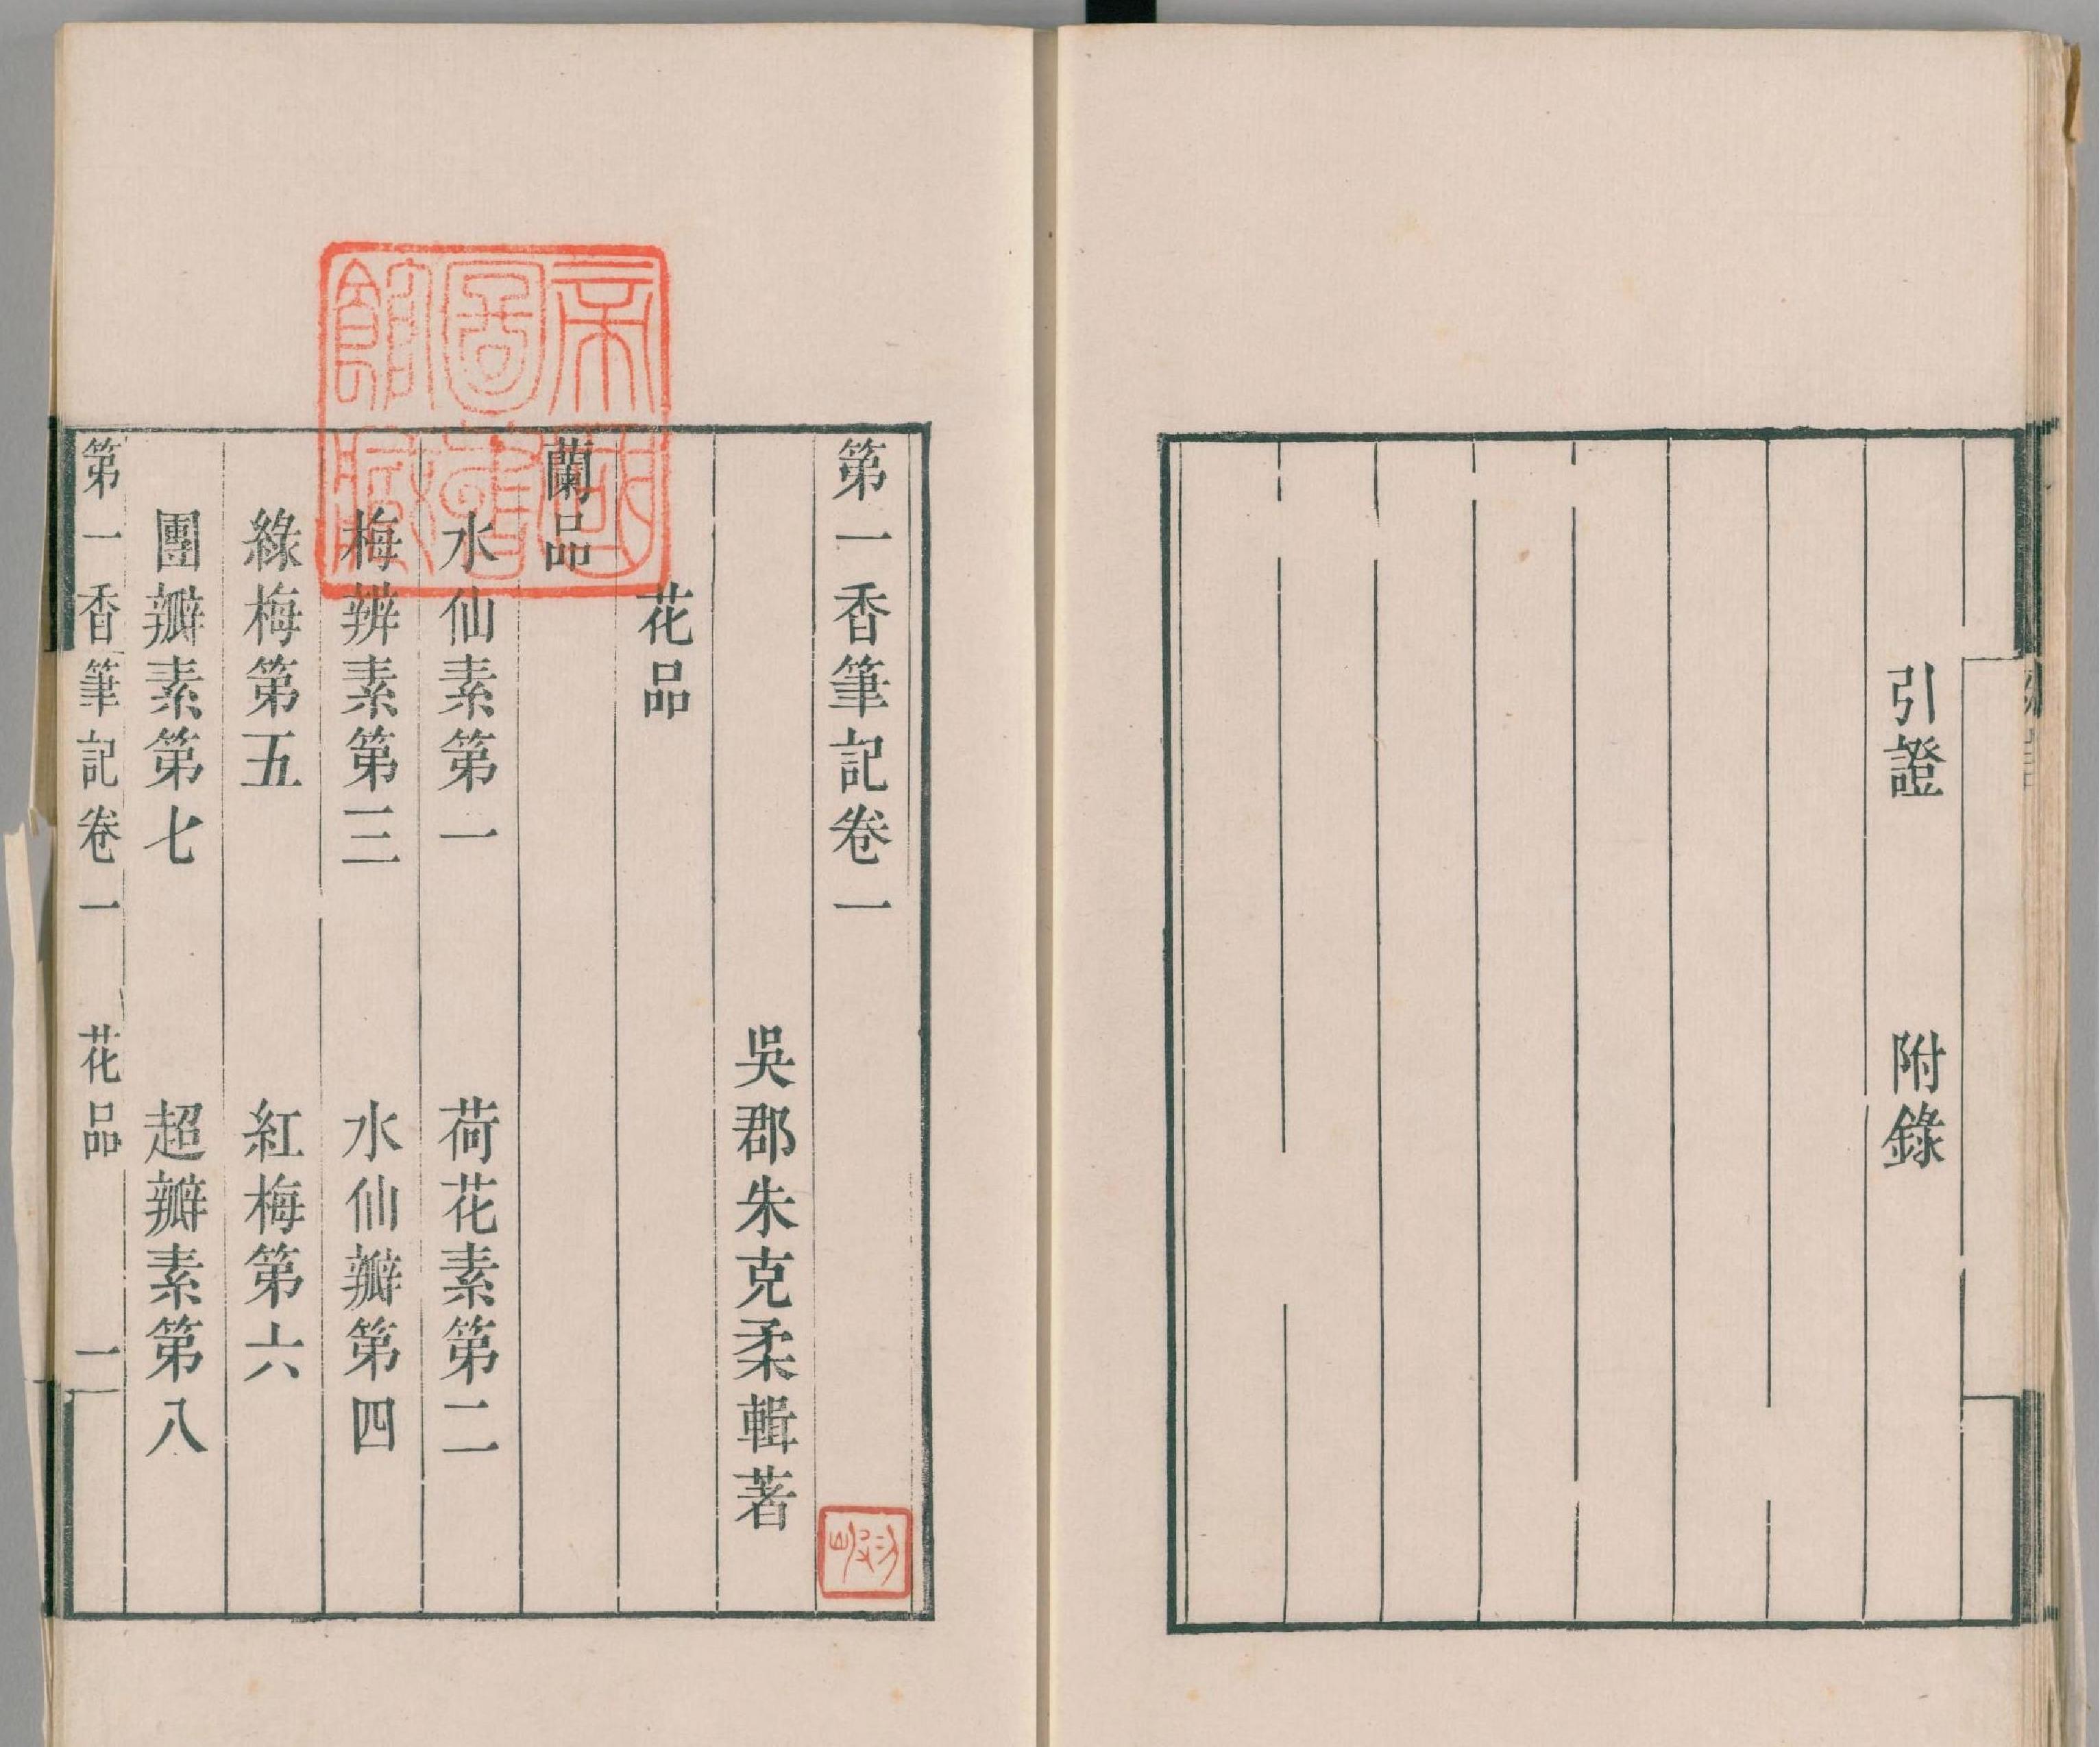 引證　附錄
第一香筆記卷一
吳郡朱克柔輯著
花品
蘭品
水仙素第一　荷花素第二
梅辨素第三　水仙瓣第四
綠梅第五　紅梅第六
團瓣素第七　超瓣素第八
第一香筆記卷一　花品　一
帝國圖書館藏